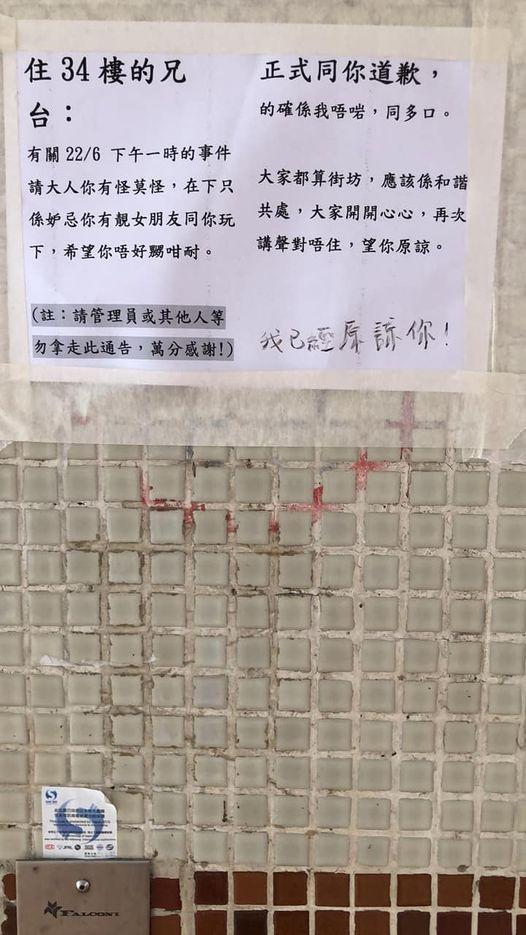 住 34 樓的兄
台：
有關 22/6 下午一時的事件
請大人你有怪莫怪，在下只
係妒忌你有靚女朋友同你玩
下，希望你唔好嬲咁耐。
(註：請管理員或其他人等
勿拿走此通告，萬分感謝!)
正式同你道歉，
的確係我唔啱，同多口。
大家都算街坊，應該係和諧
共處，大家開開心心，再次
講聲對唔住，望你原諒。
我已經原諒你！
FALCONI